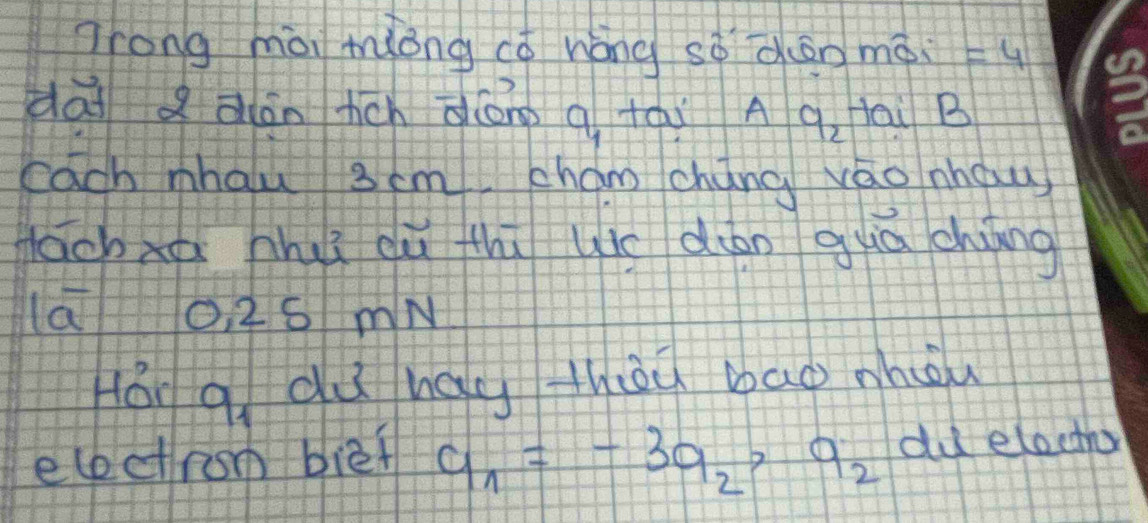 Trong môi trường có hằng số điện môi = 4
đặt 2 điện tích điểm q₁ tại A q₂ tại B
cách nhau 3 cm. chạm chúng vào nhau,
tách xa như cũ thì lực điện giữa chúng
là 0,25 mN
Hỏi q₁ dư hay thiếu bao nhiêu
electron biết q₁ = -3q₂, q₂ dư electro
PLUS